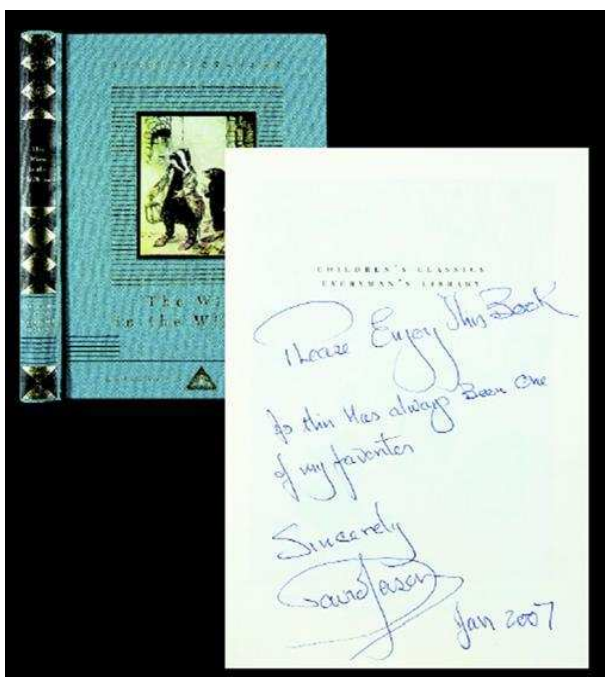 The
Wind
in the
The Wi
in the Wil
CHILDREN'S CLASSICS
EVERYMAN'S LIBRARY
Please Enjoy This Book
As this Has always Been One
of my favorites
Sincerely
David Jason
Jan 2007